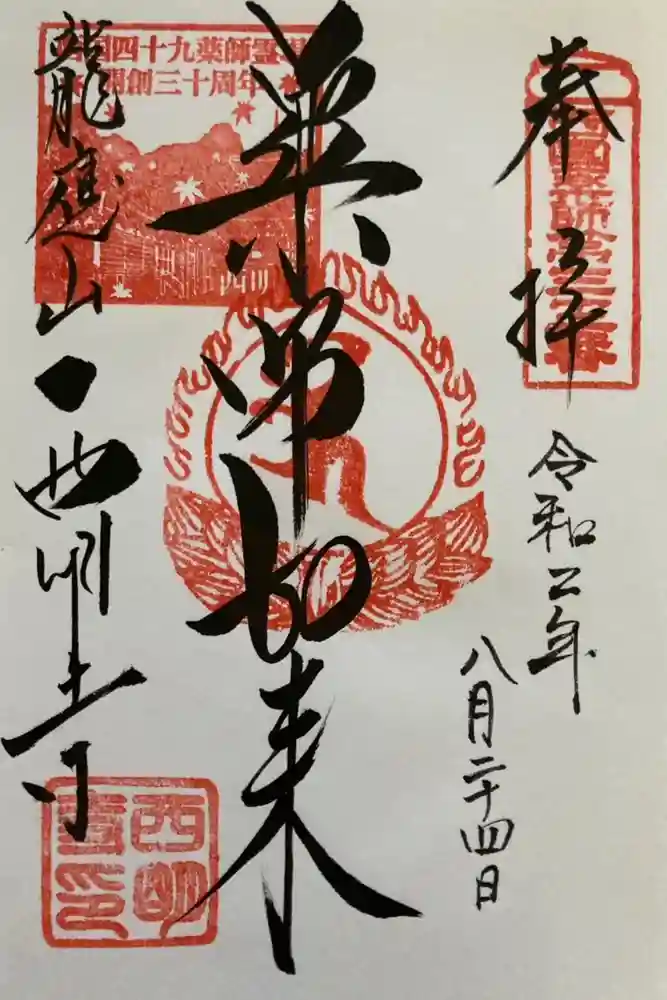 奉拝
西國薬師第三十二番
令和二年
八月二十四日
薬師如来
西国四十九薬師霊場
開創三十周年
龍應山
西明寺